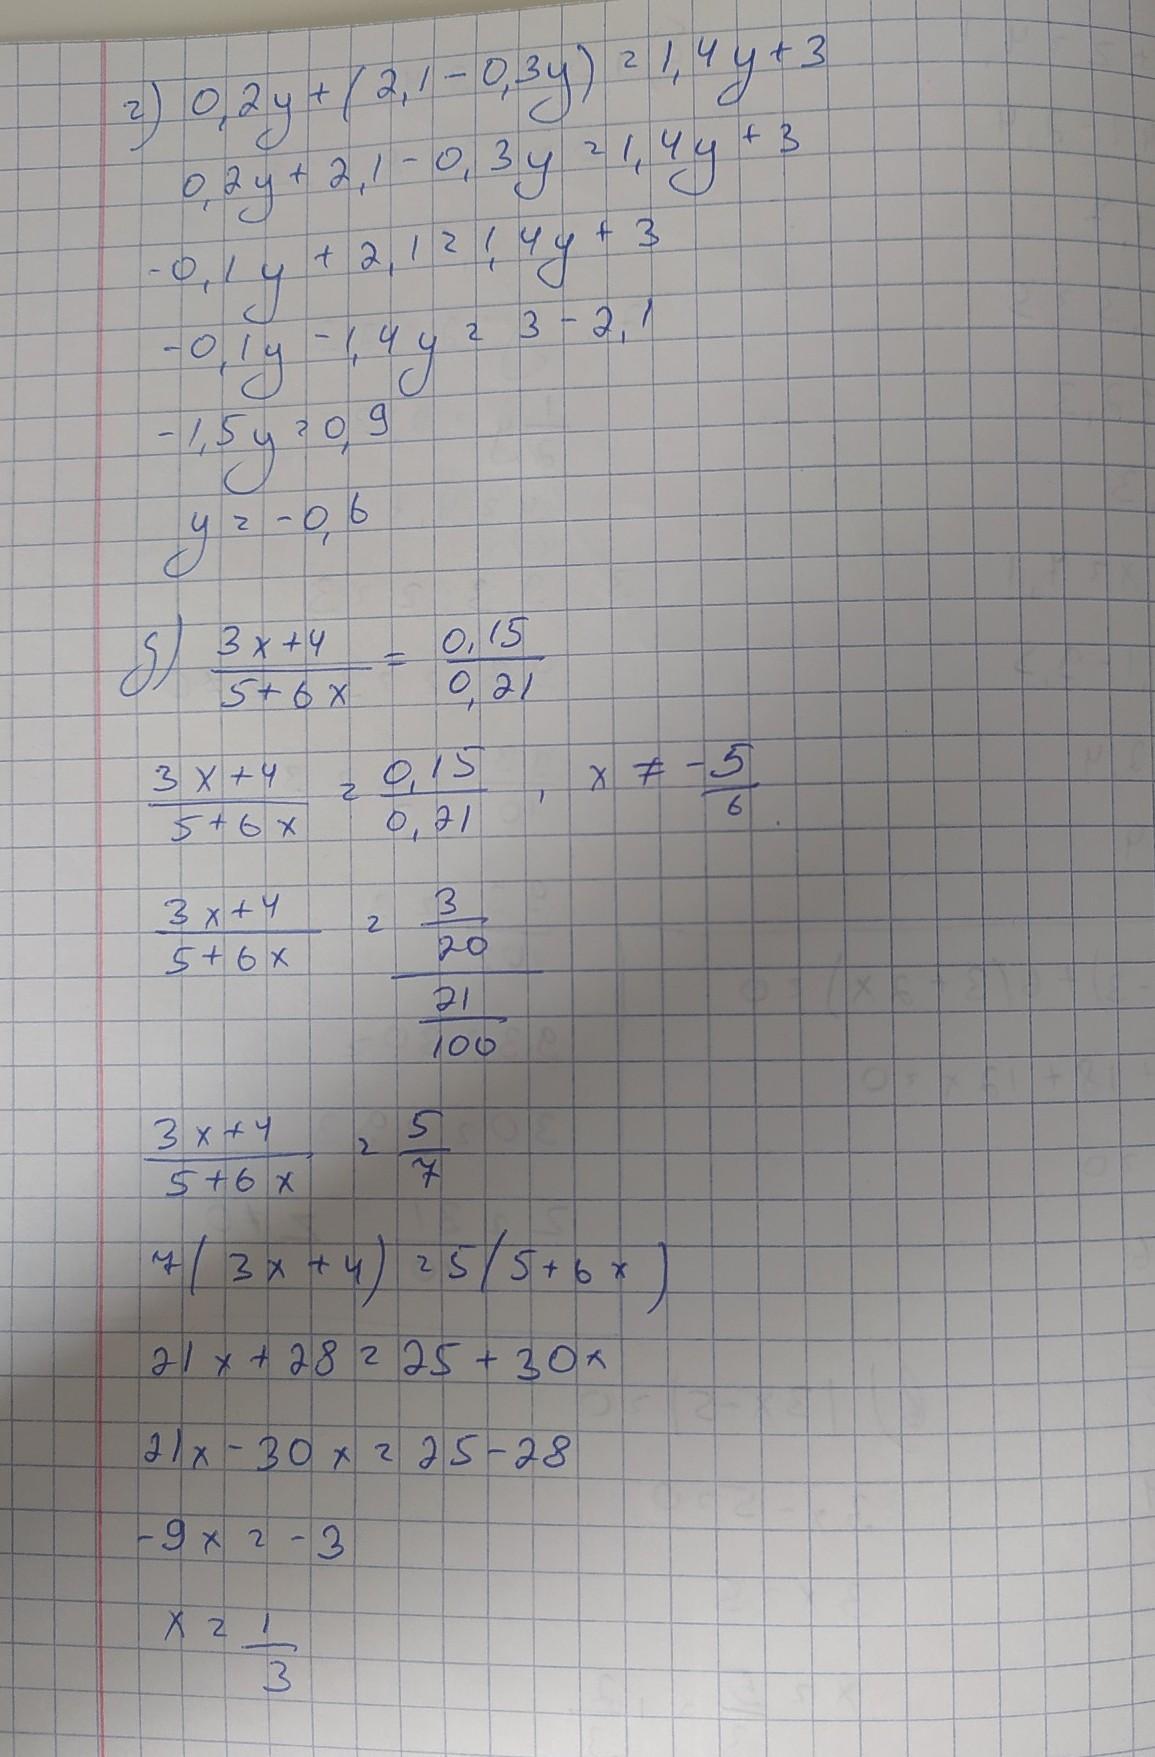 г) 0,2y + (2,1 - 0,3y) = 1,4y + 3
0,2y + 2,1 - 0,3y = 1,4y + 3
-0,1y + 2,1 = 1,4y + 3
-0,1y - 1,4y = 3 - 2,1
-1,5y = 0,9
y = -0,6
g) (3x+4)/(5+6x) = 0,15/0,21
(3x+4)/(5+6x) = 0,15/0,21 , x ≠ -5/6
(3x+4)/(5+6x) = (3/20)/(21/100)
(3x+4)/(5+6x) = 5/7
7(3x+4) = 5(5+6x)
21x + 28 = 25 + 30x
21x - 30x = 25 - 28
-9x = -3
x = 1/3